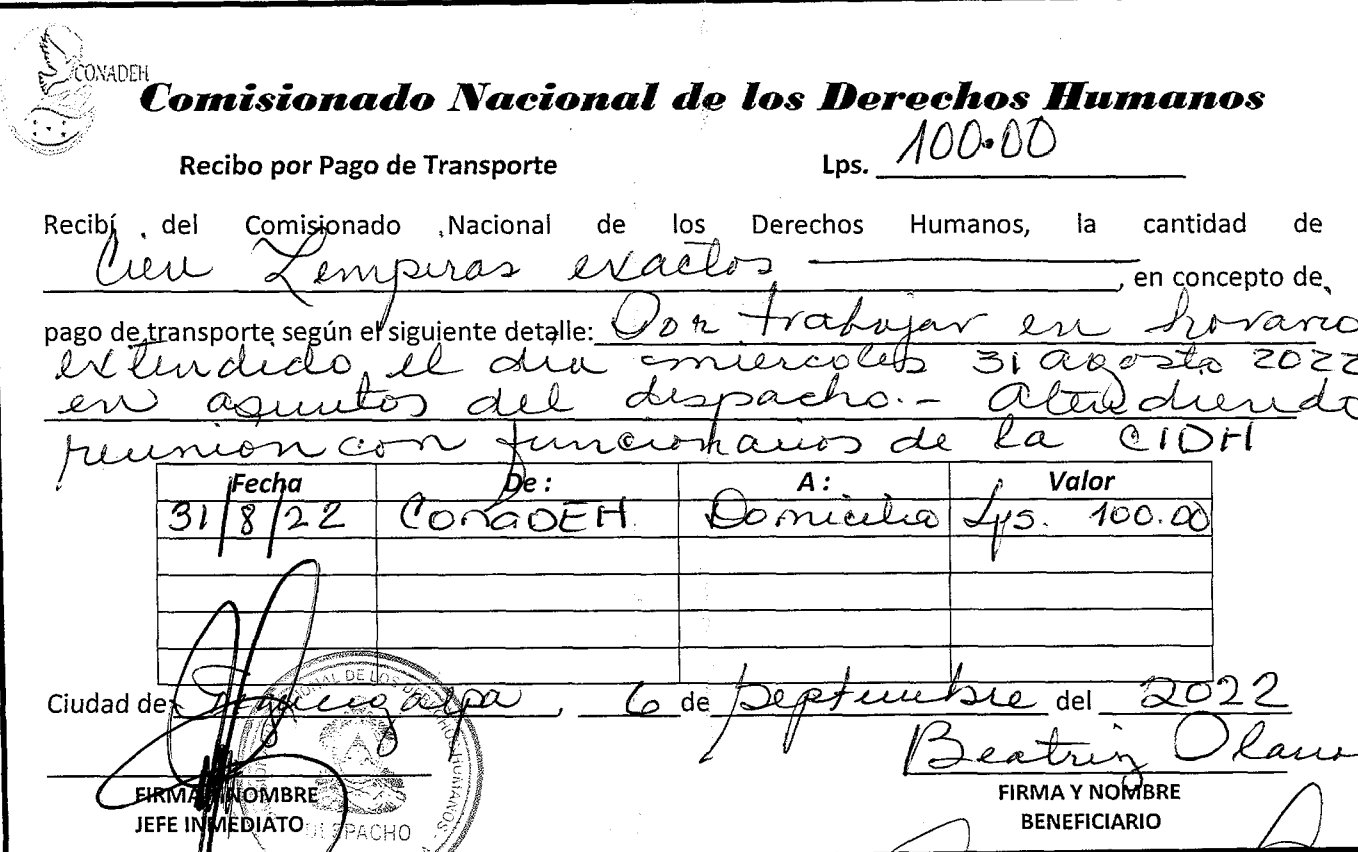 CONADEH
Comisionado Nacional de los Derechos Humanos
Recibo por Pago de Transporte Lps. 100.00
Recibí del Comisionado Nacional de los Derechos Humanos, la cantidad de
Cien Lempiras exactos, en concepto de
pago de transporte según el siguiente detalle: Por trabajar en horario
extendido, el dia miercoles 31 agosto 2022
en asuntos del despacho.- Atendiendo
reunion con funcionarios de la CIDH
Fecha De: A: Valor
31/8/22 CONADEH Domicilio Lps. 100.00
Ciudad de Tegucigalpa, 6 de septiembre del 2022
Beatriz
FIRMA Y NOMBRE FIRMA Y NOMBRE
JEFE INMEDIATO BENEFICIARIO
DESPACHO